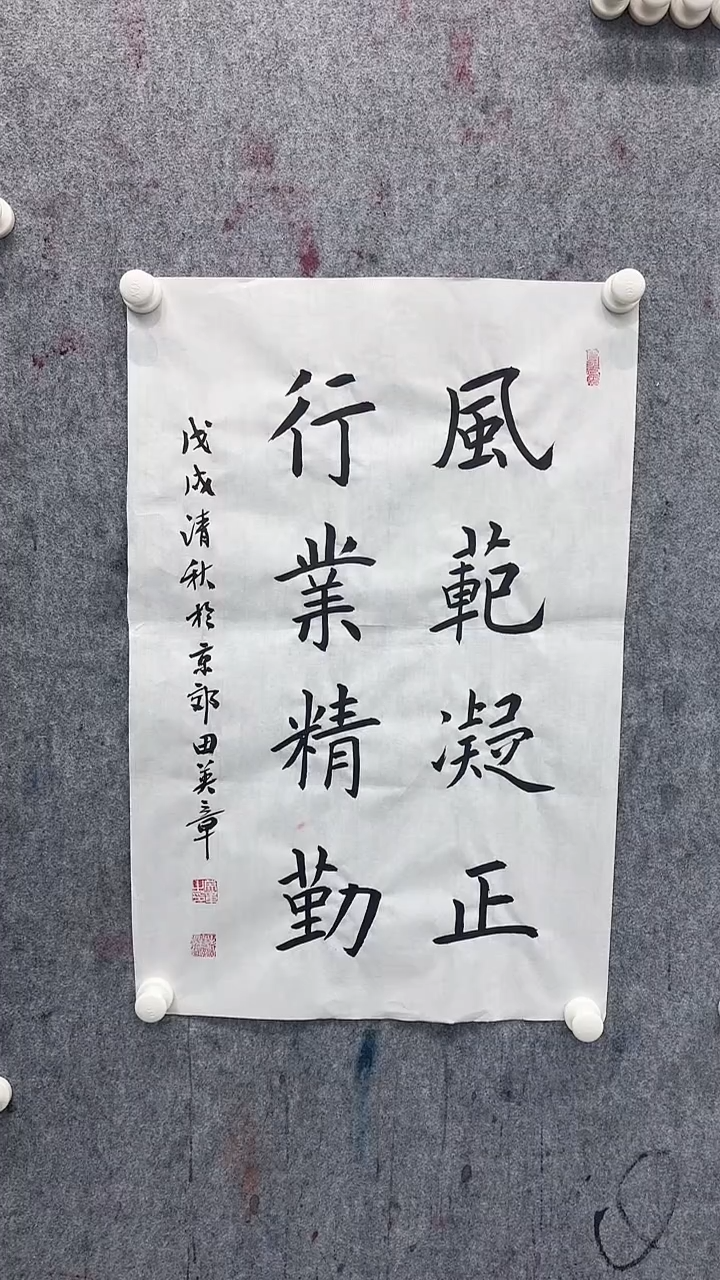 風範凝正
行業精勤
戊戌清秋於京郊田英章